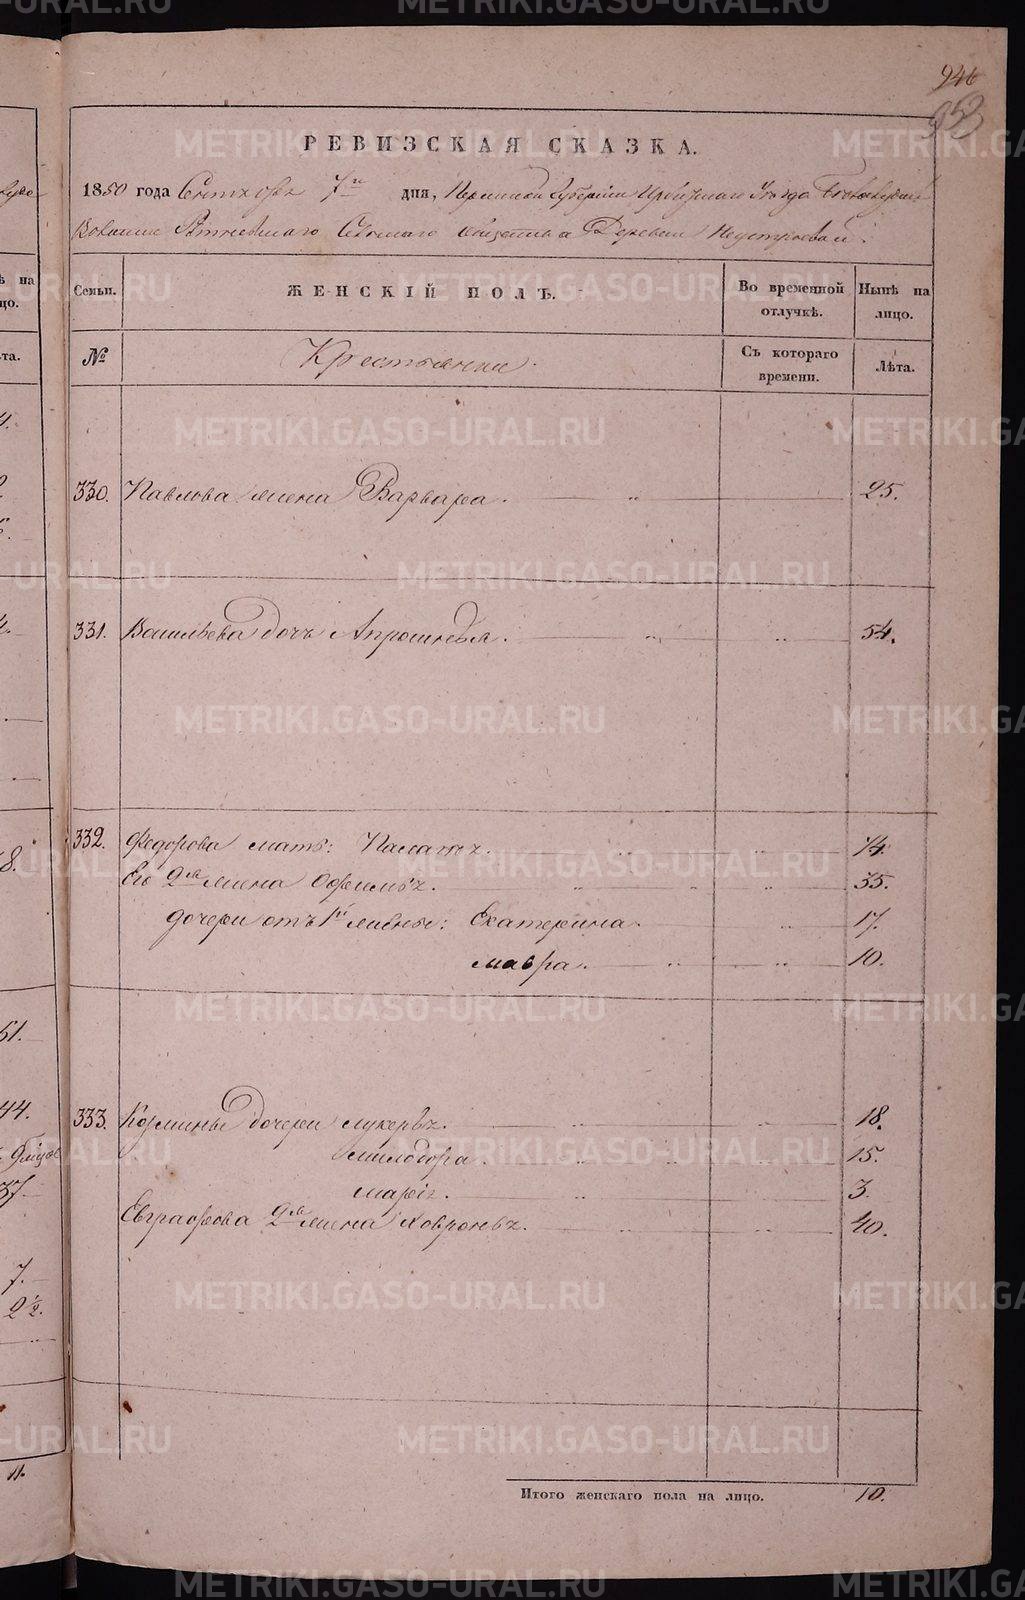 946
953
РЕВИЗСКАЯ СКАЗКА.
1850 года Сентября 7го дня, Пермской Губернии Ирбитскаго Уезда
Сельскаго общества Деревни
Семьи. ЖЕНСКІЙ ПОЛЪ. Во временной отлучкѣ. Нынѣ на лицо.
№ Крестьянки. Съ котораго времени. Лѣта.
330. Павлова жена Варвара. 25.
331. Васильева дочь 54.
332. Федорова мать: 74.
Его 2я жена Офимья. 35.
дочери отъ 1й жены: Екатерина. 17.
Мавра. 10.
333. дочери Лукерья. 18.
15.
Марія. 3.
Евграфова 2я жена Ховронья. 40.
Итого женскаго пола на лицо. 10.
8.
51.
44.
37
7.
2 1/2.
11.
METRIKI.GASO-URAL.RU